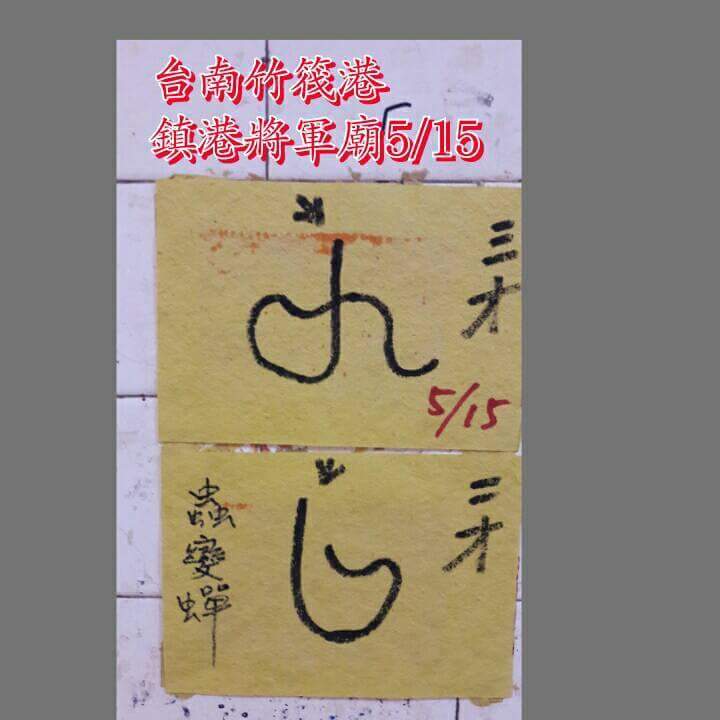 台南竹筏港
鎮港將軍廟5/15
三才
5/15
三才
蟲變蟬